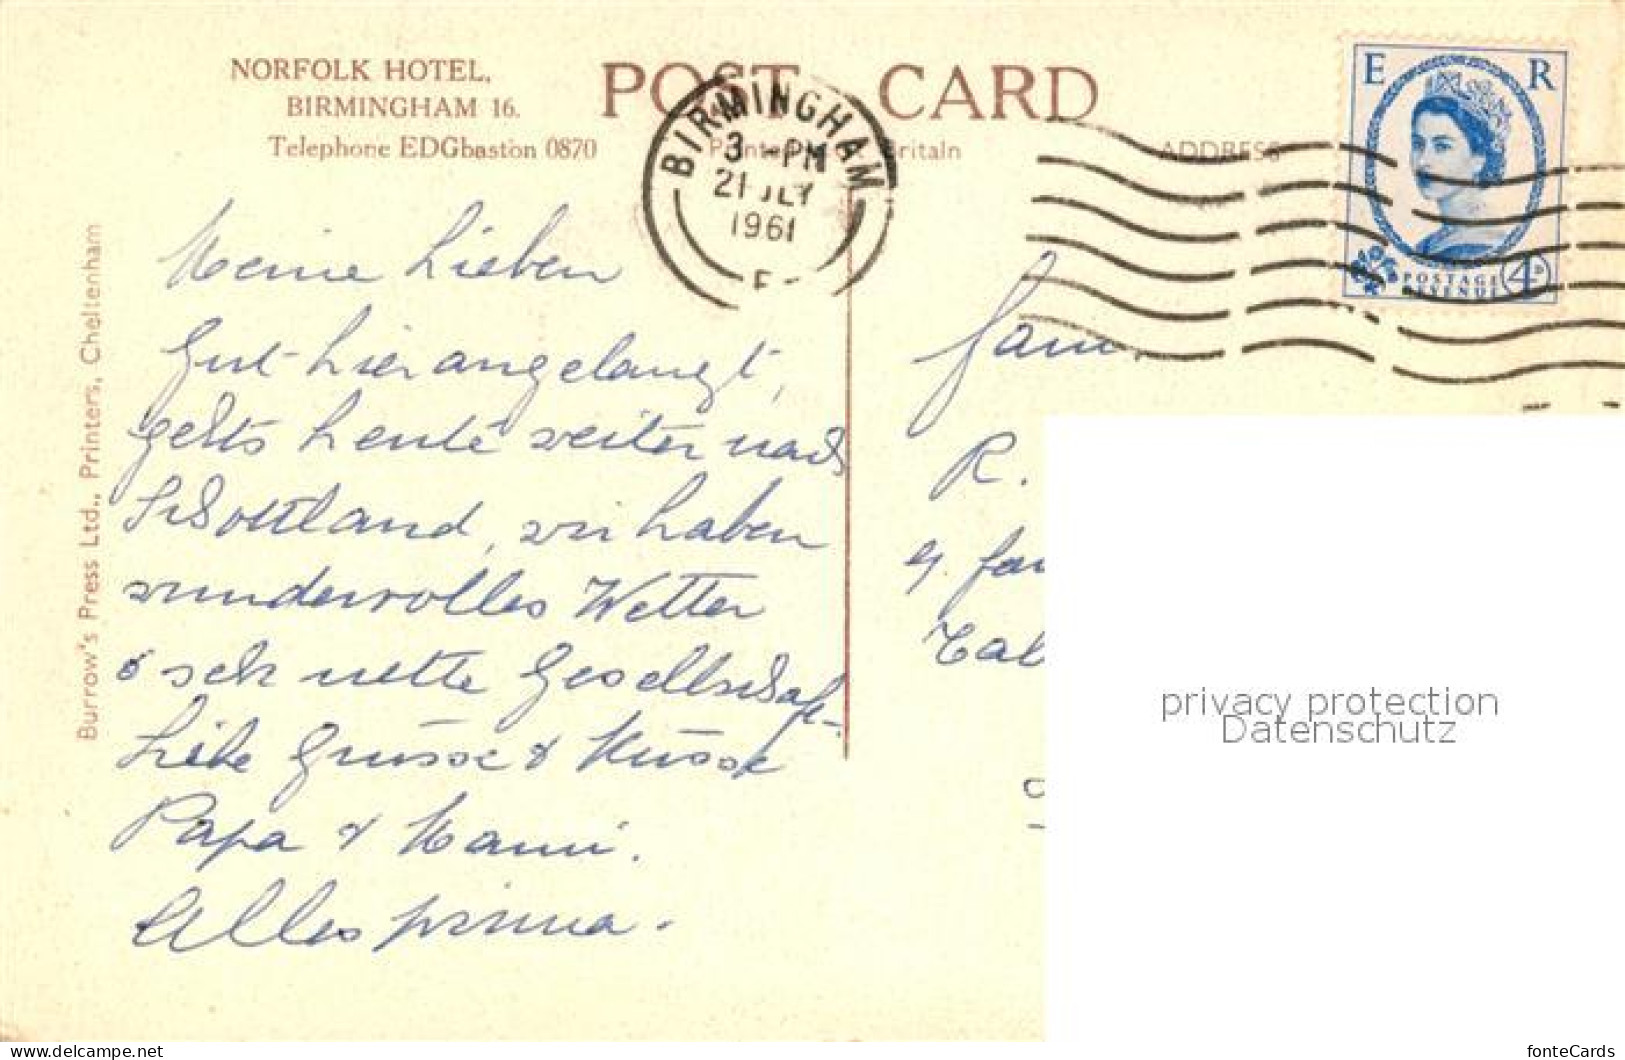 NORFOLK HOTEL,
BIRMINGHAM 16.
Telephone EDGbaston 0870
POST CARD
Printed Britain
ADDRESS
BIRMINGHAM
3 - PM
21 JLY
1961
E R
POSTAGE
REVENUE
4D
Burrow's Press Ltd., Printers, Cheltenham
Meine Lieben
Gut hier angelangt,
gehts heute weiter nach
Schottland, wir haben
wundervolles Wetter
& sehr nette Gesellschaft.
Liebe Grüsse & Küsse
Papa & Mami.
Alles prima.
Fam.
R.
privacy protection
Datenschutz
www.delcampe.net
fonteCards